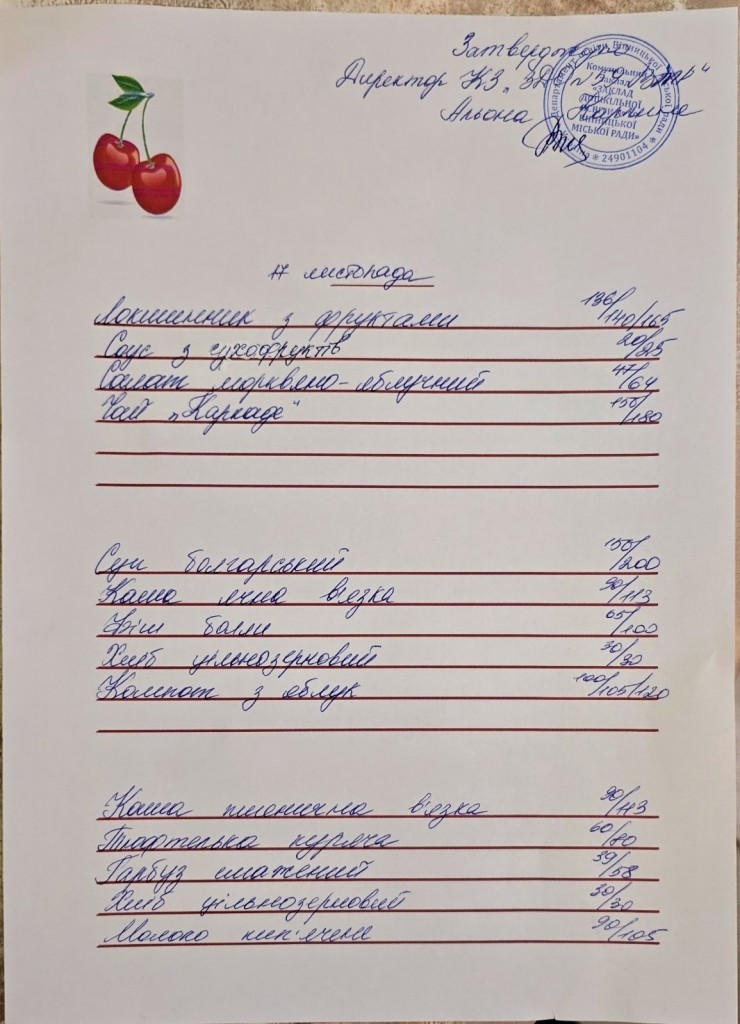 Затверджую
Директор КЗ „ЗДО №59 ВМР"
Альона
Департамент освіти Вінницької міської ради
Комунальний
заклад
«ЗАКЛАД
ДОШКІЛЬНОЇ
ОСВІТИ
ВІННИЦЬКОЇ
МІСЬКОЇ РАДИ»
Україна * 24901104 *
17 листопада
Локшинник з фруктами 136/140/165
Соус з сухофруктів 20/25
Салат морквено-яблучний 47/64
Чай „Каркаде" 150/180
Суп болгарський 150/200
Каша ячна в'язка 90/113
Фіш болли 65/100
Хліб цільнозерновий 30/30
Компот з яблук 100/105/120
Каша пшенична в'язка 90/113
Тюфтелька куряча 60/80
Гарбуз смажений 39/58
Хліб цільнозерновий 30/30
Молоко кип'ячене 90/105